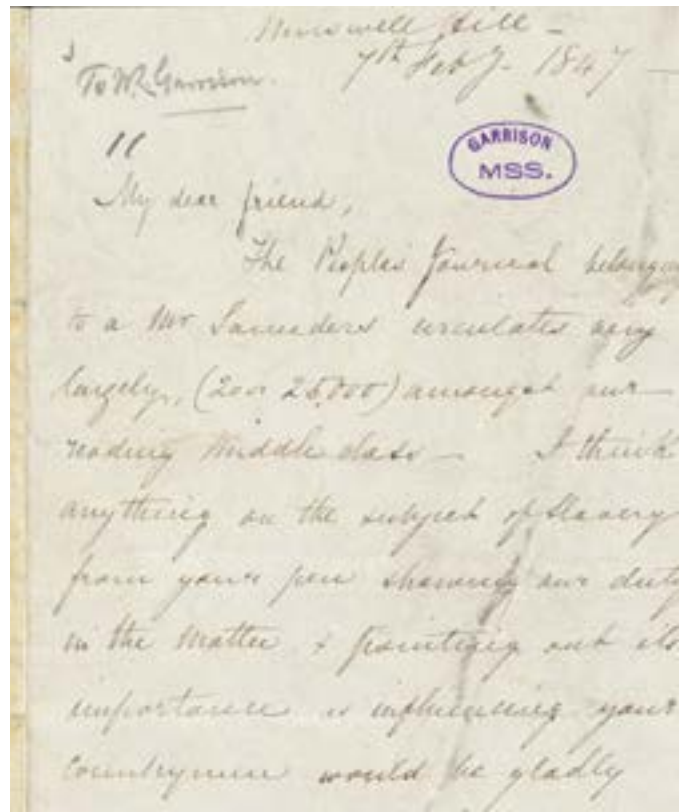 Muswell Hill -
7th Feby - 1847 -
To W. L. Garrison.
GARRISON
MSS.
My dear friend,
The Peoples Journal belonging
to a Mr Saunders circulates very
largely, (20 or 25,000) amongst our
reading Middle class - I think
anything on the subject of Slavery
from your pen shewing our duty
in the Matter & pointing out its
importance in influencing your
Countrymen would be gladly